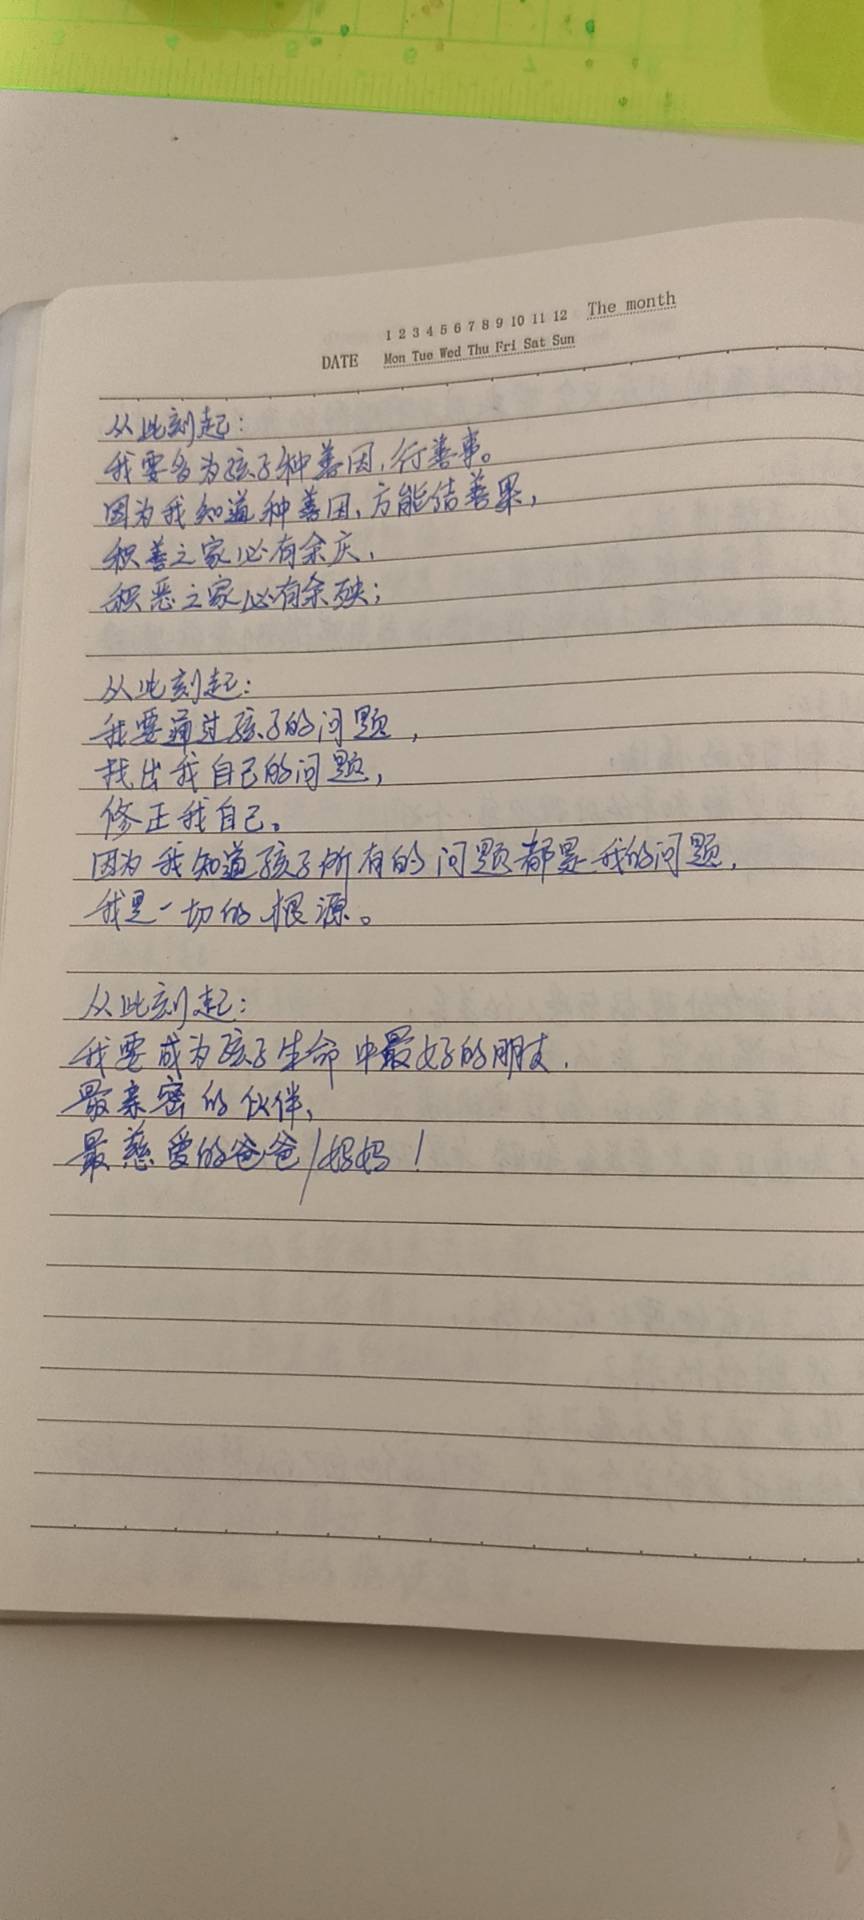 1 2 3 4 5 6 7 8 9 10 11 12 The month
DATE Mon Tue Wed Thu Fri Sat Sun
从此刻起：
我要多为孩子种善因，行善事。
因为我知道种善因，方能结善果，
积善之家必有余庆，
积恶之家必有余殃；
从此刻起：
我要通过孩子的问题，
找出我自己的问题，
修正我自己。
因为我知道孩子所有的问题都是我的问题，
我是一切的根源。
从此刻起：
我要成为孩子生命中最好的朋友，
最亲密的伙伴，
最慈爱的爸爸/妈妈！